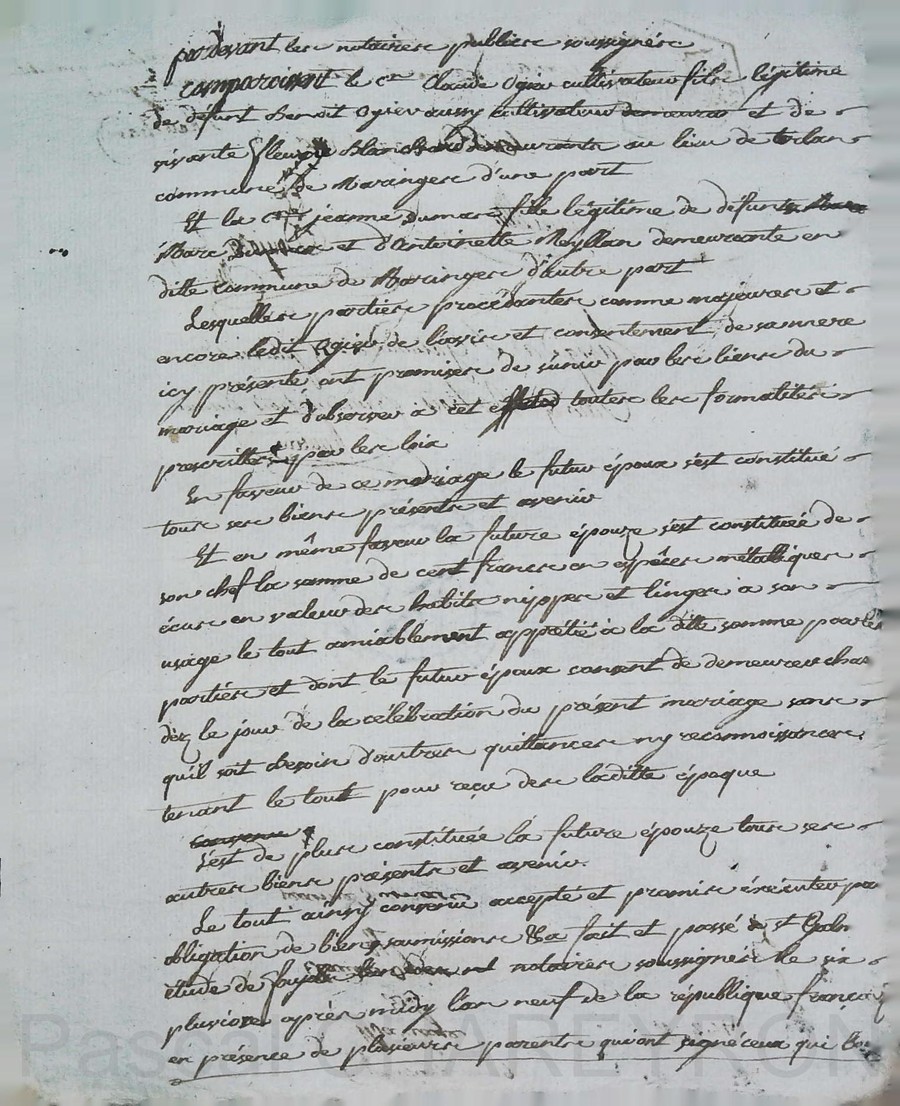 pardevant les notaires publics soussignés
comparaissent le cen Claude Ogier cultivateur fils légitime
de défunt Benoit Ogier aussy cultivateur et de
vivante fleurie Blanchard demeurante au lieu de
commune de Maringes d'une part
Et la cenne jeanne Dumas fille légitime de défunt
Marc Dumas et d'Antoinette Meyllan demeurante en
ditte commune de Maringes d'autre part
Lesquelles parties procédantes comme majeures et
encore ledit Ogier de l'avis et consentement de sa mere
icy présente ont promises de s'unir par les liens du
mariage et d'observer à cet effet toutes les formalités
prescrittes par les loix
En faveur de ce mariage le futur époux s'est constitué
tous ses biens présents et avenir
Et en même faveur la future épouze s'est constituée de
son chef la somme de cent francs en espêces métalliques
écus en valeur des habits nippes et linges à son
usage le tout amiablement appretié à la ditte somme par les
parties et dont le futur époux consent de demeurer char
dez le jour de la célébration du présent mariage sans
qu'il soit besoin d'autres quittances ny reconnoissances
tenant le tout pour reçu des laditte époque
convenu
s'est de plus constituée la future épouze tous ses
autres biens présents et avenir.
Le tout ainsy convenu accepté et promis éxécuter par
obligation de biens soumissions &a fait et passé à st Galm
étude de notaires soussignés le six
pluviose après midy l'an neuf de la république françai
en présence de plusieurs parents qui ont signé ceux qui l'o
Pascal CHAREYRON